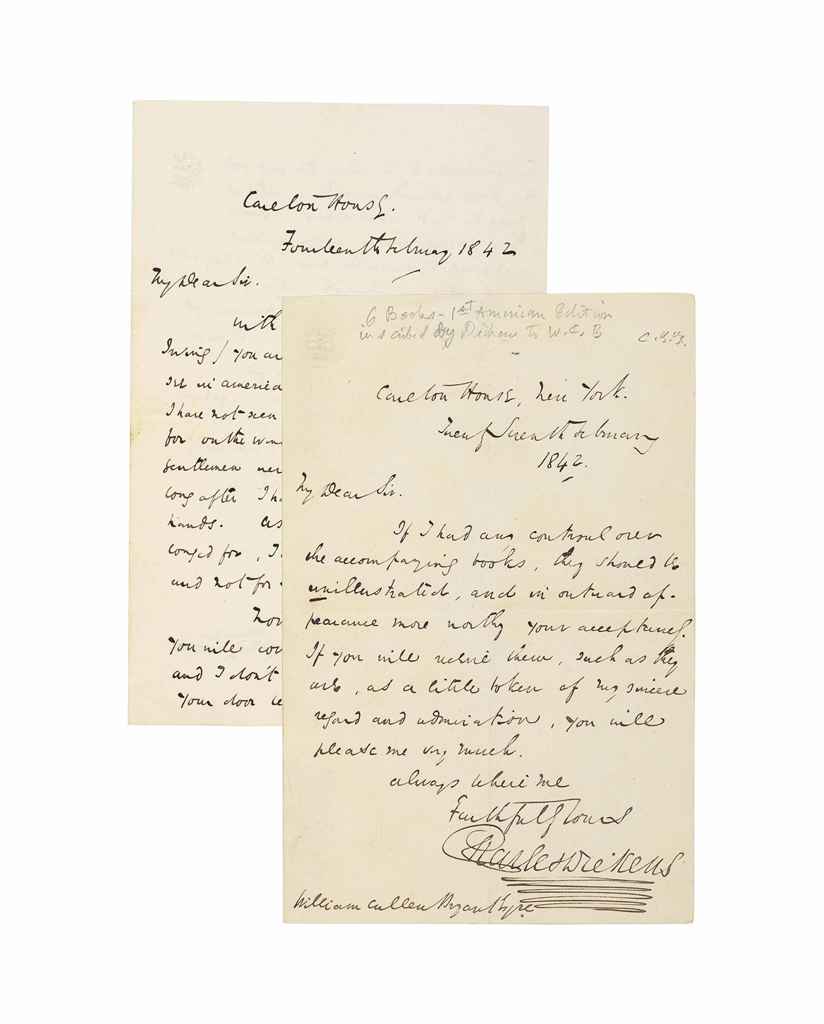 Carlton House.
Fourteenth February 1842
My Dear Sir.
with
Irving) you are
see in America
I have not seen
for on the
gentlemen
long after I
hands. As
longed for, I
and not for
Now
you will
and I don't
your door
6 Books - 1st American Edition
inscribed by Dickens to W. C. B
Carlton House, New York.
Twenty Seventh February
1842.
My Dear Sir.
If I had any controul over
the accompanying books, they should be
unillustrated, and in outward ap-
pearance more worthy your acceptance.
If you will receive them, such as they
are, as a little token of my sincere
regard and admiration, you will
please me very much.
always believe me
Faithfully Yours
Charles Dickens
William Cullen Bryant Esqre